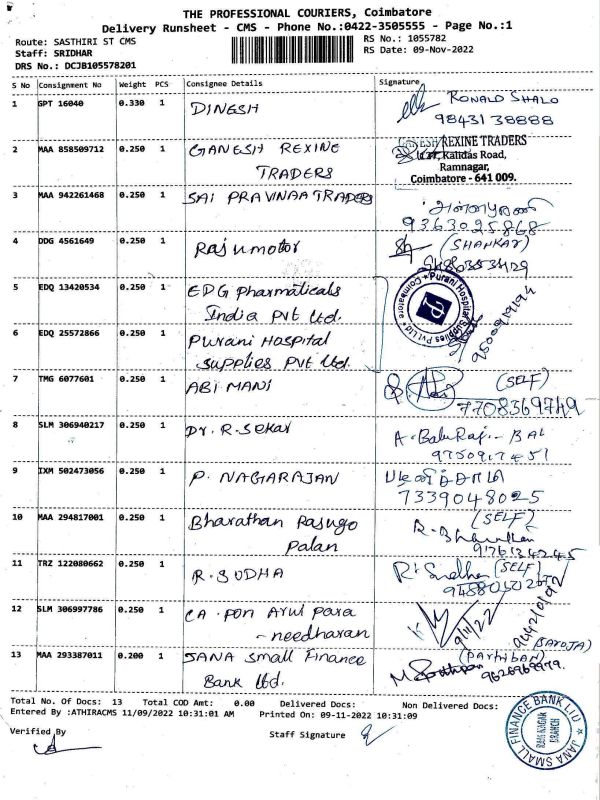 THE PROFESSIONAL COURIERS, Coimbatore
Delivery Runsheet - CMS - Phone No.:0422-3505555 - Page No.:1
Route: SASTHIRI ST CMS
RS No.: 1055782
Staff: SRIDHAR
RS Date: 09-Nov-2022
DRS No.: DCJB105578201
S No Consignment No Weight PCS Consignee Details Signature
1 GPT 16040 0.330 1 DINESH RONALD SHALO
9843138888
2 MAA 858509712 0.250 1 GANESH REXINE
TRADERS
GANESH REXINE TRADERS
Kalidas Road,
Ramnagar,
Coimbatore - 641 009.
3 MAA 942261468 0.250 1 SAI PRAVINAA TRADERS
9363025868
4 DDG 4561649 0.250 1 Rajumotor (SHANKAR)
5 EDQ 13420534 0.250 1 EDG Pharmaticals
India Pvt Ltd.
Purani Hospital Supplies Pvt Ltd * Coimbatore *
6 EDQ 25572866 0.250 1 Purani Hospital
Supplies Pvt Ltd.
9500919194
7 TMG 6077601 0.250 1 ABI MANI (SELF)
7708369749
8 SLM 306940217 0.250 1 Dr. R. Sekar A. Babu Raj - BAL
9750917451
9 IXM 502473056 0.250 1 P. NAGARAJAN பழனிச்சாமி
7339048025
10 MAA 294817001 0.250 1 Bharathan Rasugo
palan
(SELF)
R. Bharathan
11 TRZ 122080662 0.250 1 R. SUDHA R. Sudha (SELF)
12 SLM 306997786 0.250 1 CA. Pon Arul Para
- needharan
9/11/22
(SAROJA)
13 MAA 293387011 0.200 1 JANA Small Finance
Bank Ltd.
(Parthiban)
M. Parthipan
9626969979.
Total No. Of Docs: 13 Total COD Amt: 0.00 Delivered Docs: Non Delivered Docs:
Entered By :ATHIRACMS 11/09/2022 10:31:01 AM Printed On: 09-11-2022 10:31:09
Verified By Staff Signature
JANA SMALL FINANCE BANK LTD
RAM NAGAR
BRANCH